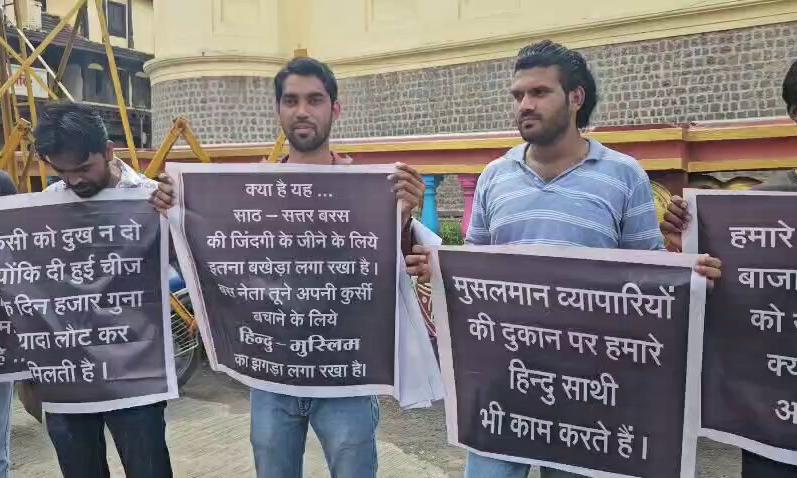 को दुख न दो
दी हुई चीज़
दिन हजार गुना
लौट कर
मिलती है।
क्या है यह ...
साठ – सत्तर बरस
की जिंदगी के जीने के लिये
इतना बखेड़ा लगा रखा है।
बस नेता तूने अपनी कुर्सी
बचाने के लिये
हिन्दु – मुस्लिम
का झगड़ा लगा रखा है।
मुसलमान व्यापारियों
की दुकान पर हमारे
हिन्दु साथी
भी काम करते हैं।
हमारे
बाजा
को
क्य